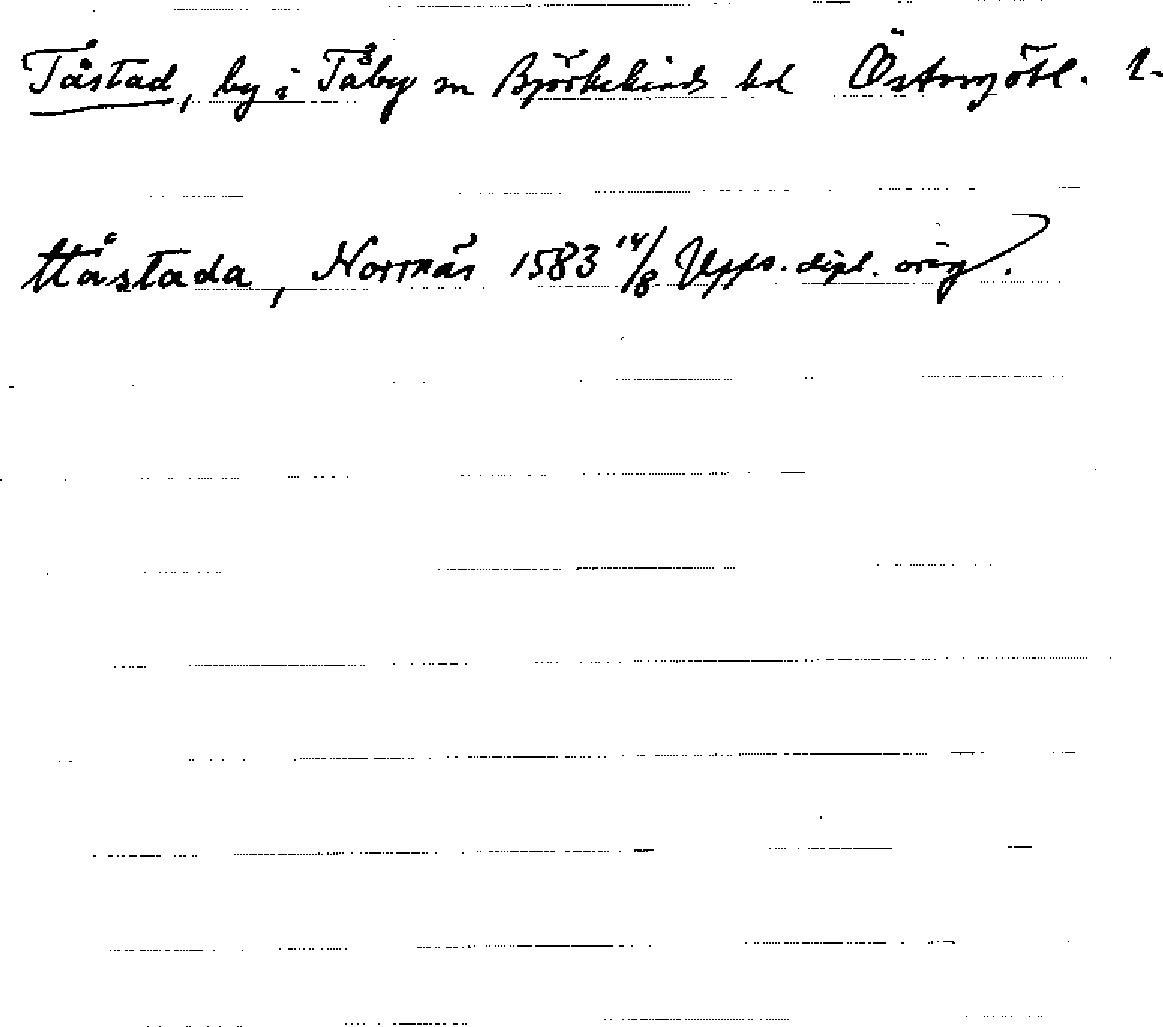 Tåstad, by i Tåby sn Björkekinds hd Östergötl. l.
ttåstada, Norrnäs 1583 14/8 Upps. dipl. orig.